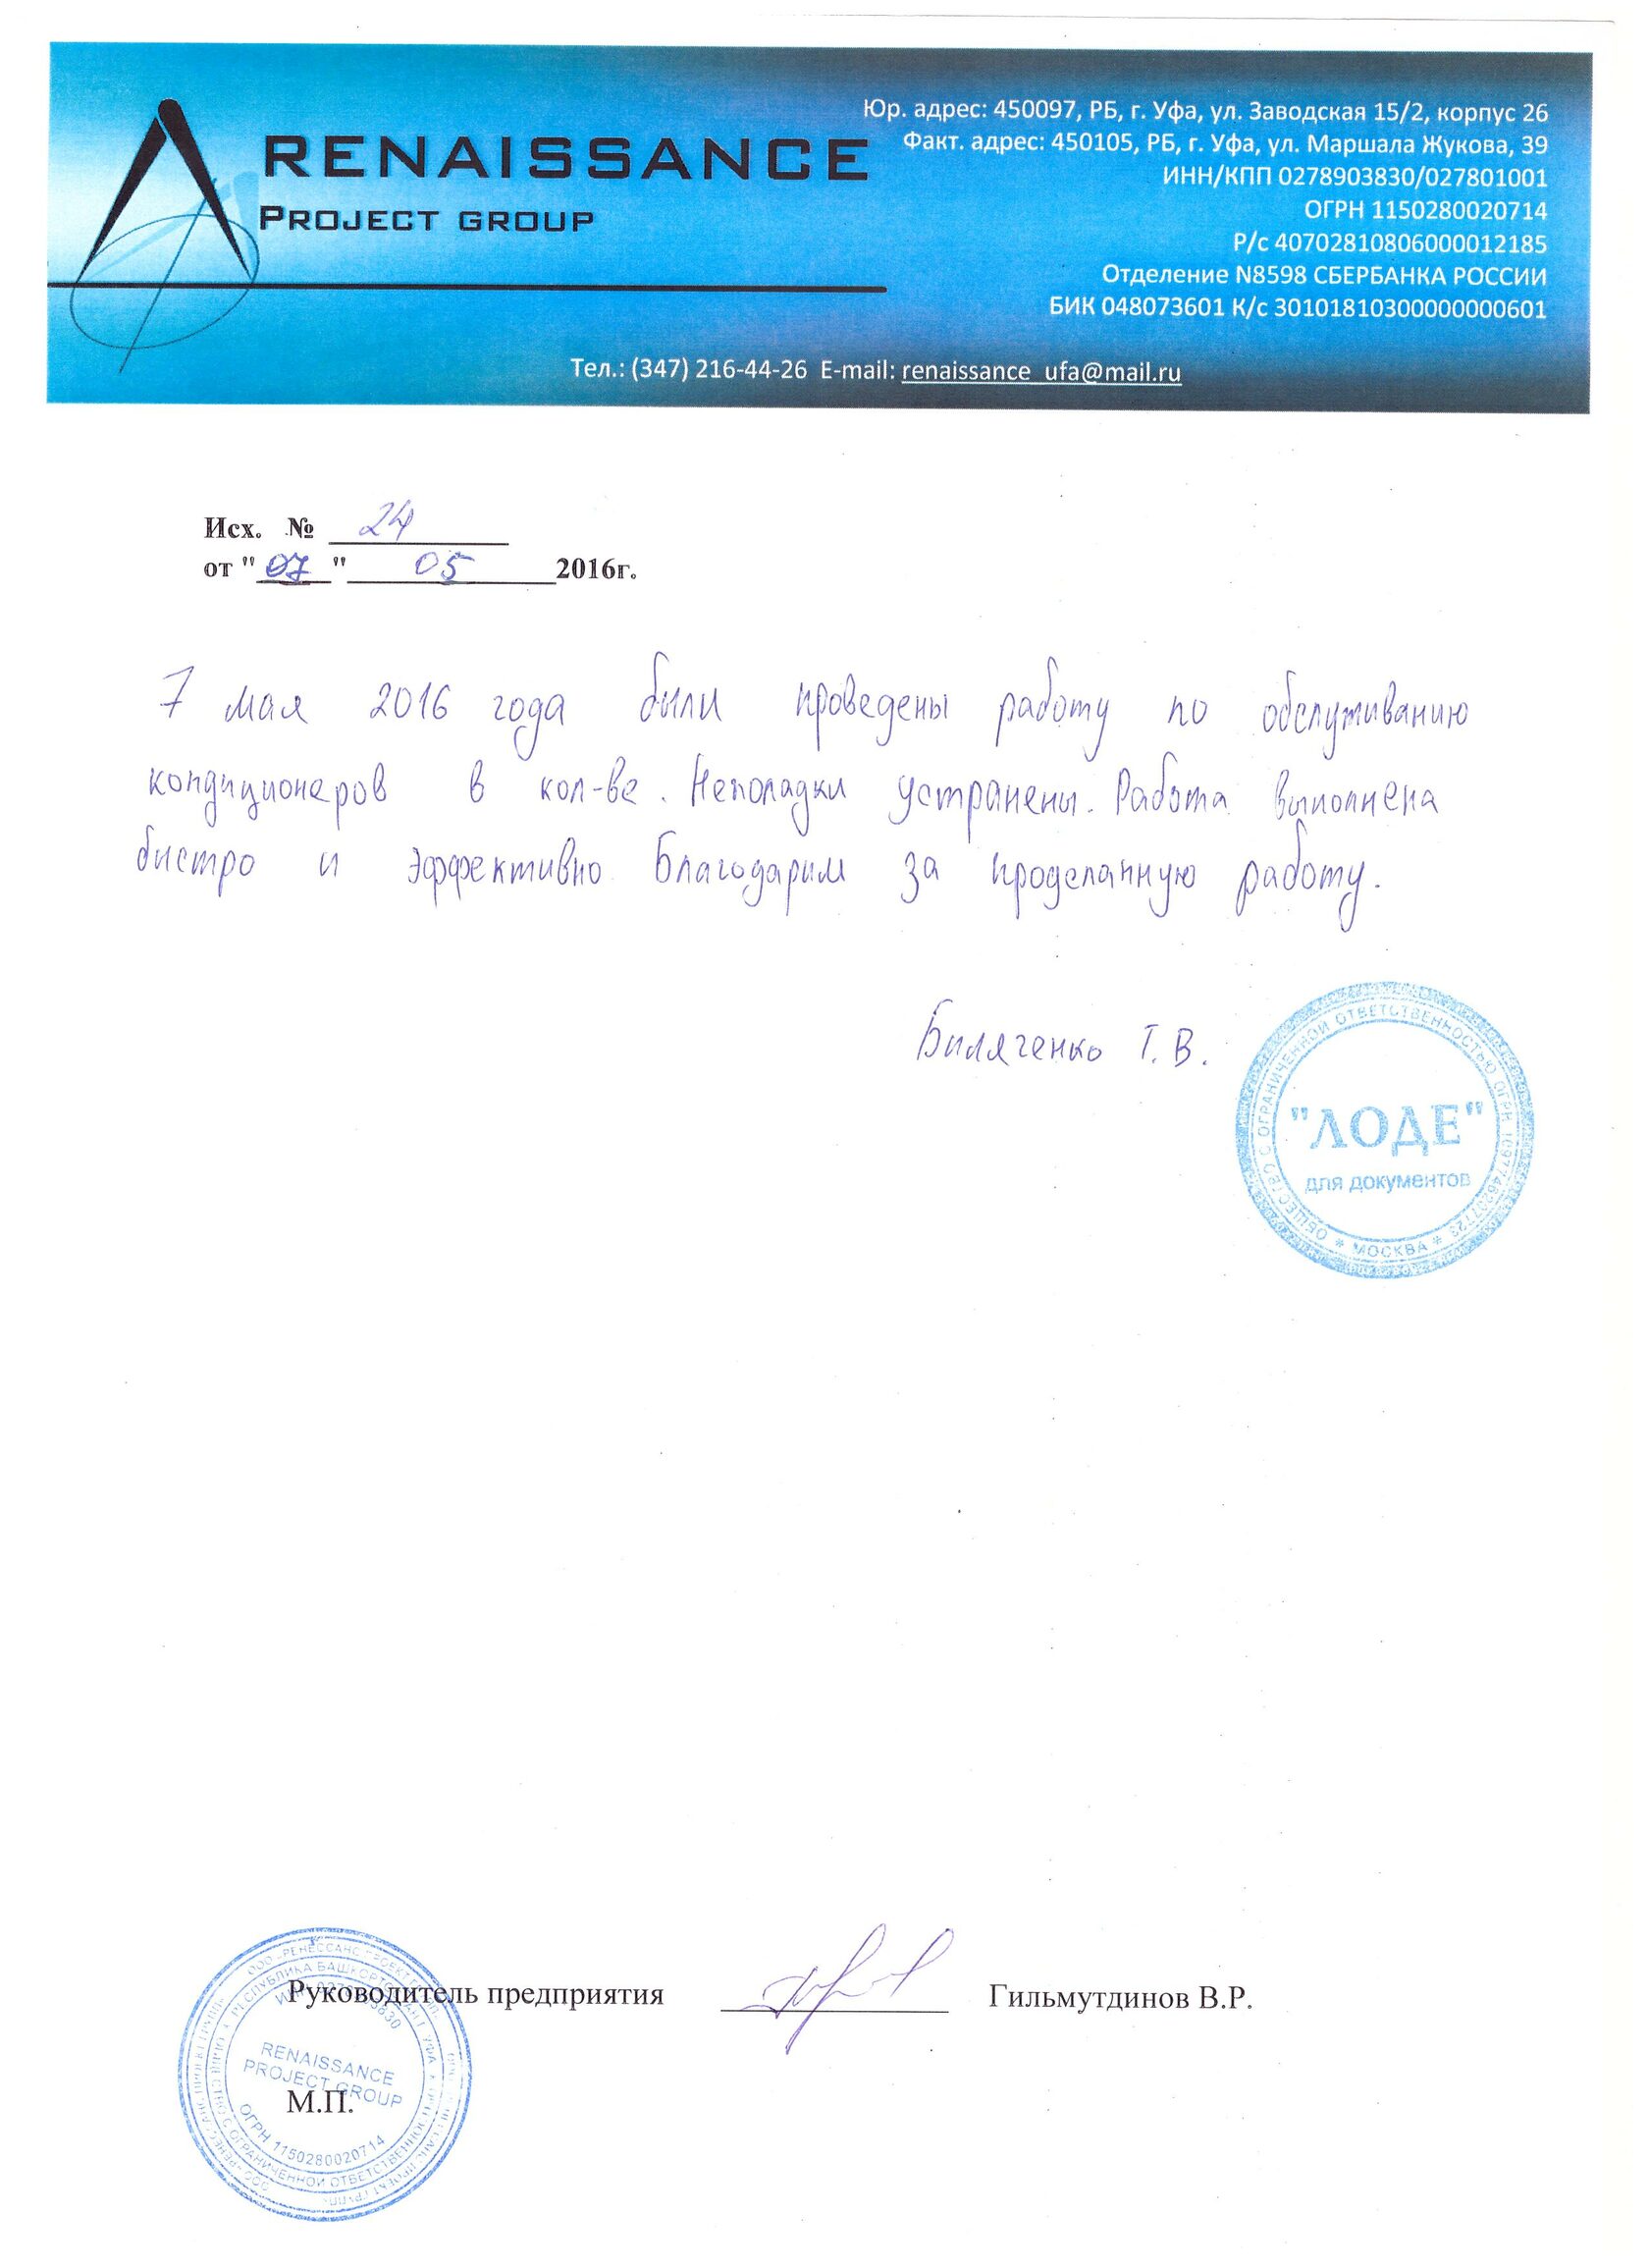 RENAISSANCE
PROJECT GROUP
Юр. адрес: 450097, РБ, г. Уфа, ул. Заводская 15/2, корпус 26
Факт. адрес: 450105, РБ, г. Уфа, ул. Маршала Жукова, 39
ИНН/КПП 0278903830/027801001
ОГРН 1150280020714
Р/с 40702810806000012185
Отделение N8598 СБЕРБАНКА РОССИИ
БИК 048073601 К/с 30101810300000000601
Тел.: (347) 216-44-26 E-mail: renaissance_ufa@mail.ru
Исх. № 24
от "07" 05 2016г.
7 мая 2016 года были проведены работу по обслуживанию
кондиционеров в кол-ве. Неполадки устранены. Работа выполнена
быстро и эффективно Благодарим за проделанную работу.
Т.В.
ОБЩЕСТВО С ОГРАНИЧЕННОЙ ОТВЕТСТВЕННОСТЬЮ ОГРН
"ЛОДЕ"
для документов
* МОСКВА *
Руководитель предприятия Гильмутдинов В.Р.
RENAISSANCE
PROJECT GROUP
М.П.
ОГРН 1150280020714